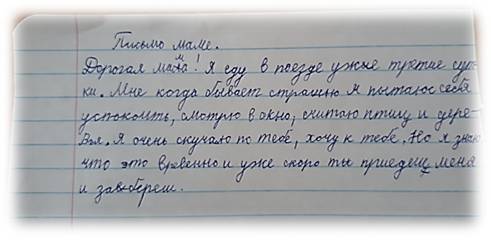 Письмо маме.
Дорогая мама! Я еду в поезде ужые третие сут-
ки. Мне когда бывает страшно я пытаюс себя
успокоить, смотрю в окно, считаю птиц и дере-
вья. Я очень скучаю по тебе, хочу к тебе. Но я знаю
что это временно и уже скоро ты приедеш меня
и заберёш.